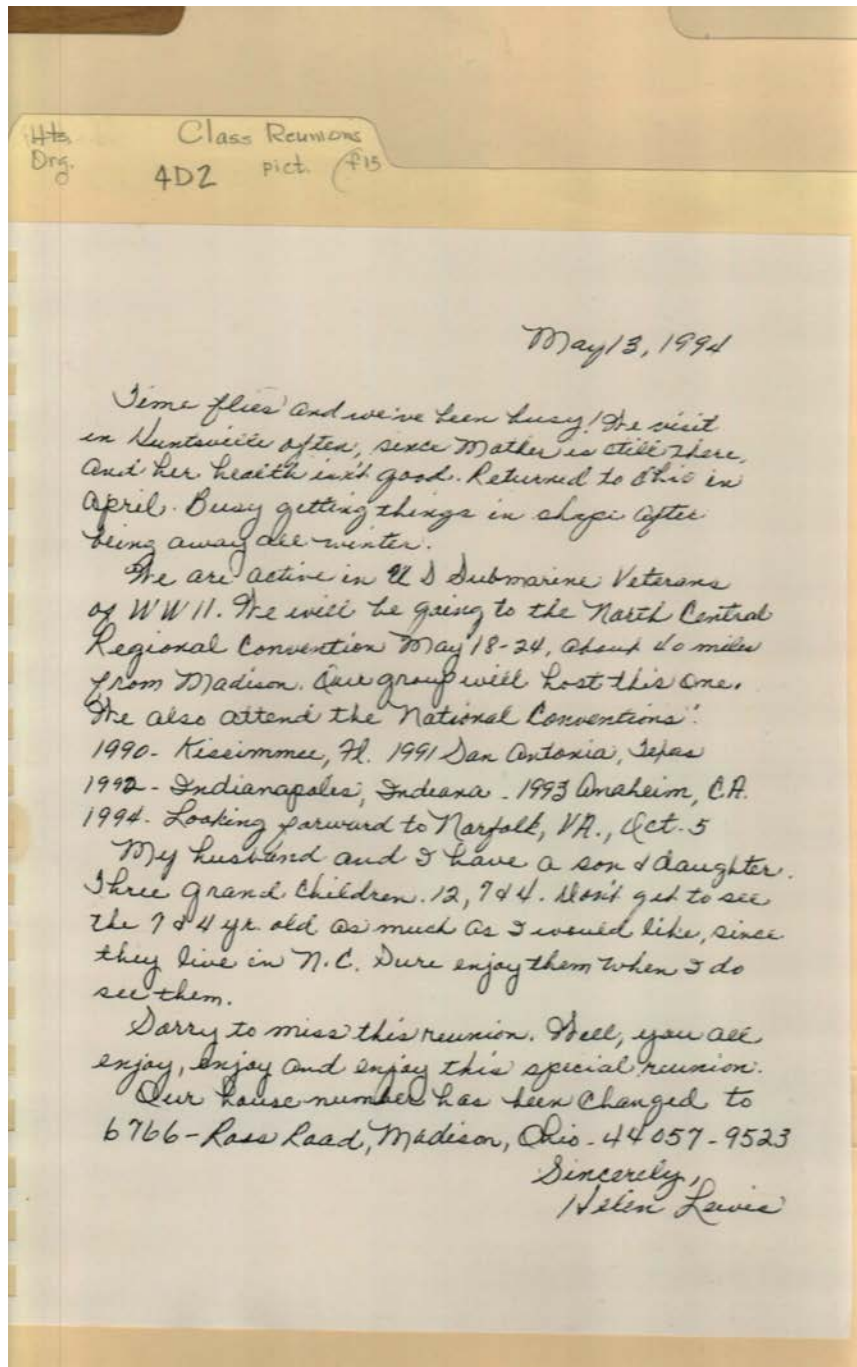 Hts. Class Reunions
Org. 4D2 pict. f15
May 13, 1994
Time flies and we've been busy! We visit
in Huntsville often, since Mother is still there,
and her health isn't good. Returned to Ohio in
April. Busy getting things in shape after
being away all winter.
We are active in U S Submarine Veterans
of WW II. We will be going to the North Central
Regional Convention May 18-24, about 40 miles
from Madison. Our group will host this one.
We also attend the National Conventions:
1990- Kissimmee, Fl. 1991 San Antonia, Texas
1992- Indianapolis, Indiana - 1993 Anaheim, CA.
1994- Looking forward to Norfolk, VA., Oct. 5
My husband and I have a son & daughter.
Three grand children. 12, 7 & 4. Don't get to see
the 7 & 4 yr. old as much as I would like, since
they live in N.C. Sure enjoy them when I do
see them.
Sorry to miss this reunion. Well, you all
enjoy, enjoy and enjoy this special reunion.
Our house number has been changed to
6766- Ross Road, Madison, Ohio - 44057-9523
Sincerely,
Helen Lewis